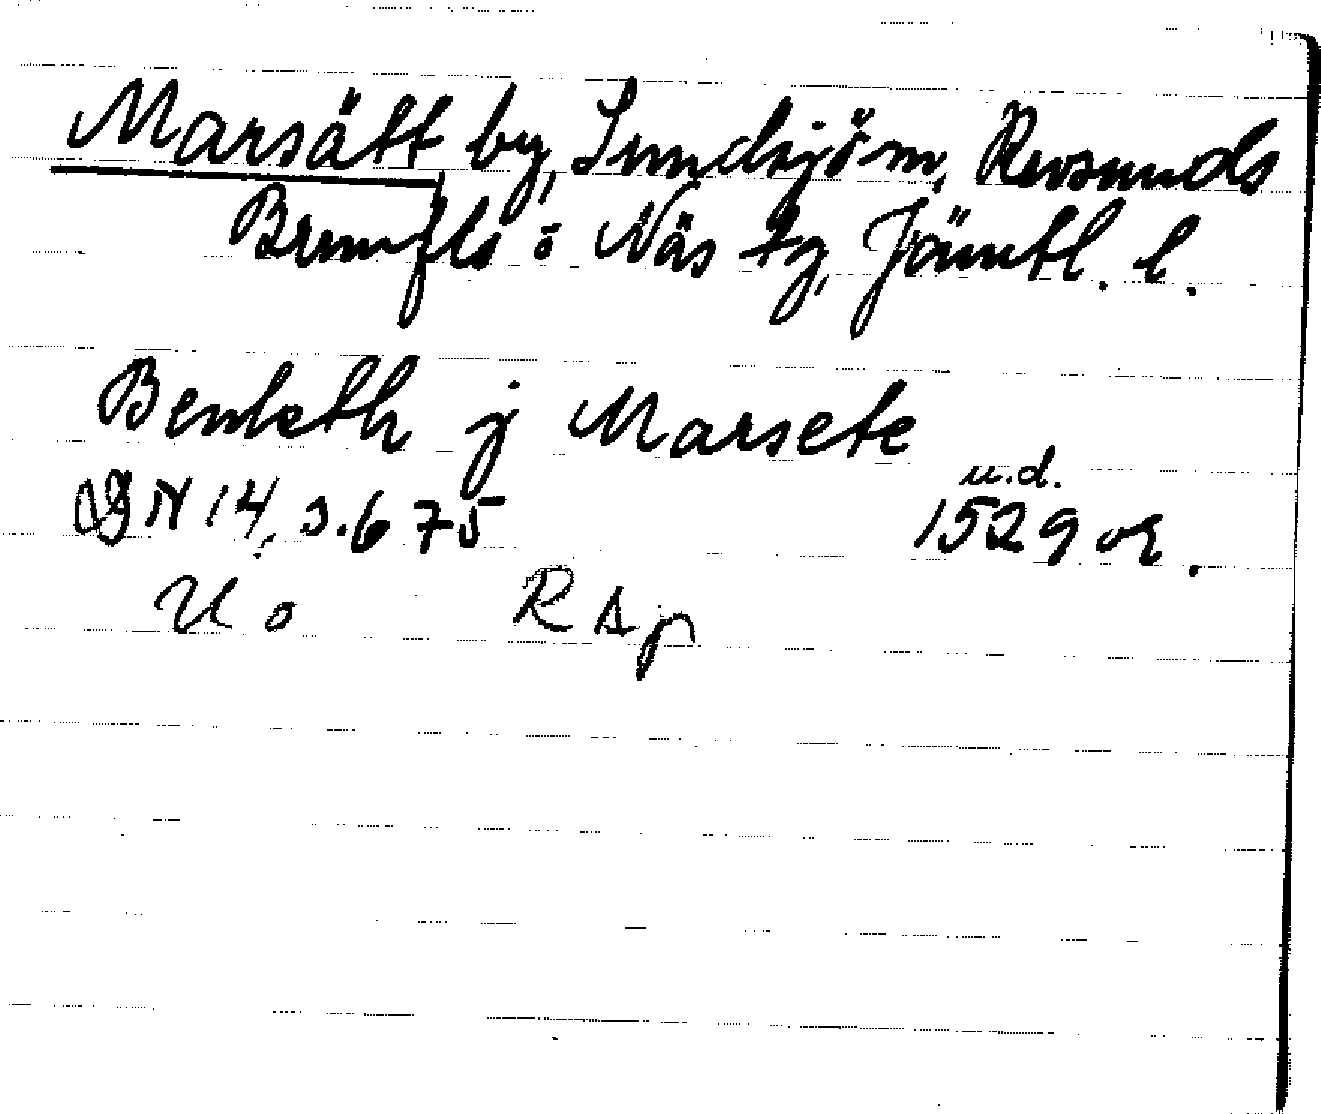 Marsätt by, Sundsjö sn, Revsunds
Brunflo o Näs tg, Jämtl. l.
Benketh j Marsete
u.d.
DN 14, s. 675 1529 or.
Uo Rsp